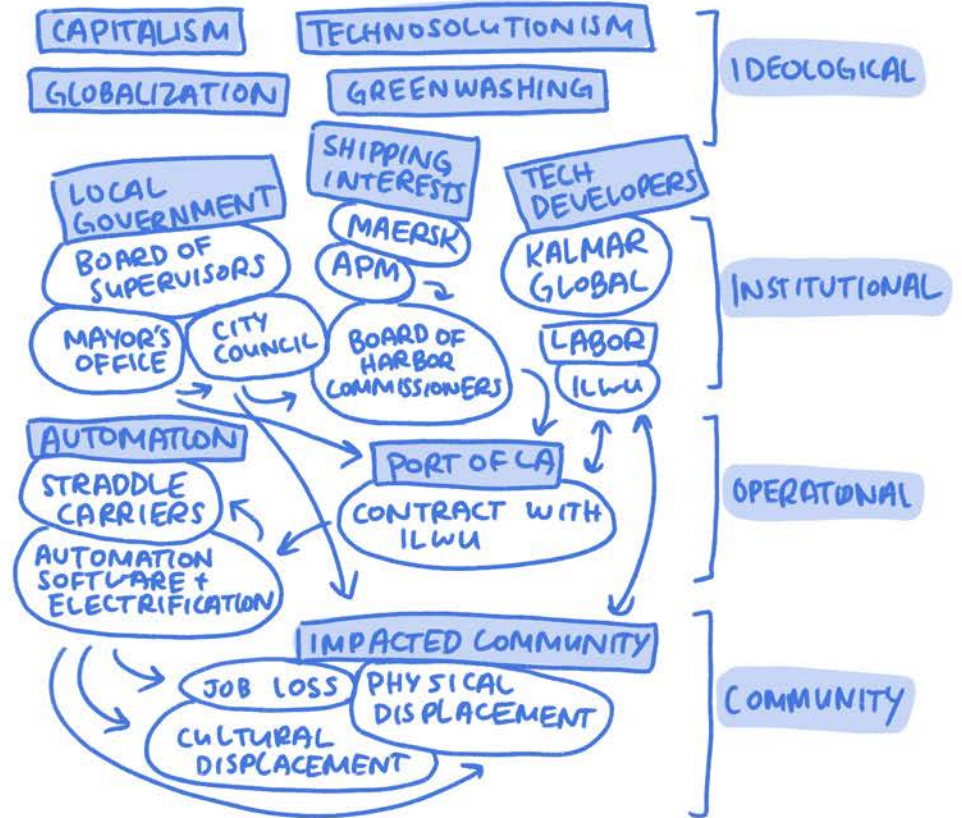 CAPITALISM
TECHNOSOLUTIONISM
GLOBALIZATION
GREENWASHING
IDEOLOGICAL
LOCAL
GOVERNMENT
BOARD OF
SUPERVISORS
MAYOR'S
OFFICE
CITY
COUNCIL
SHIPPING
INTERESTS
MAERSK
APM
BOARD OF
HARBOR
COMMISSIONERS
TECH
DEVELOPERS
KALMAR
GLOBAL
LABOR
ILWU
INSTITUTIONAL
AUTOMATION
STRADDLE
CARRIERS
AUTOMATION
SOFTWARE +
ELECTRIFICATION
PORT OF LA
CONTRACT WITH
ILWU
OPERATIONAL
IMPACTED COMMUNITY
JOB LOSS
PHYSICAL
DISPLACEMENT
CULTURAL
DISPLACEMENT
COMMUNITY